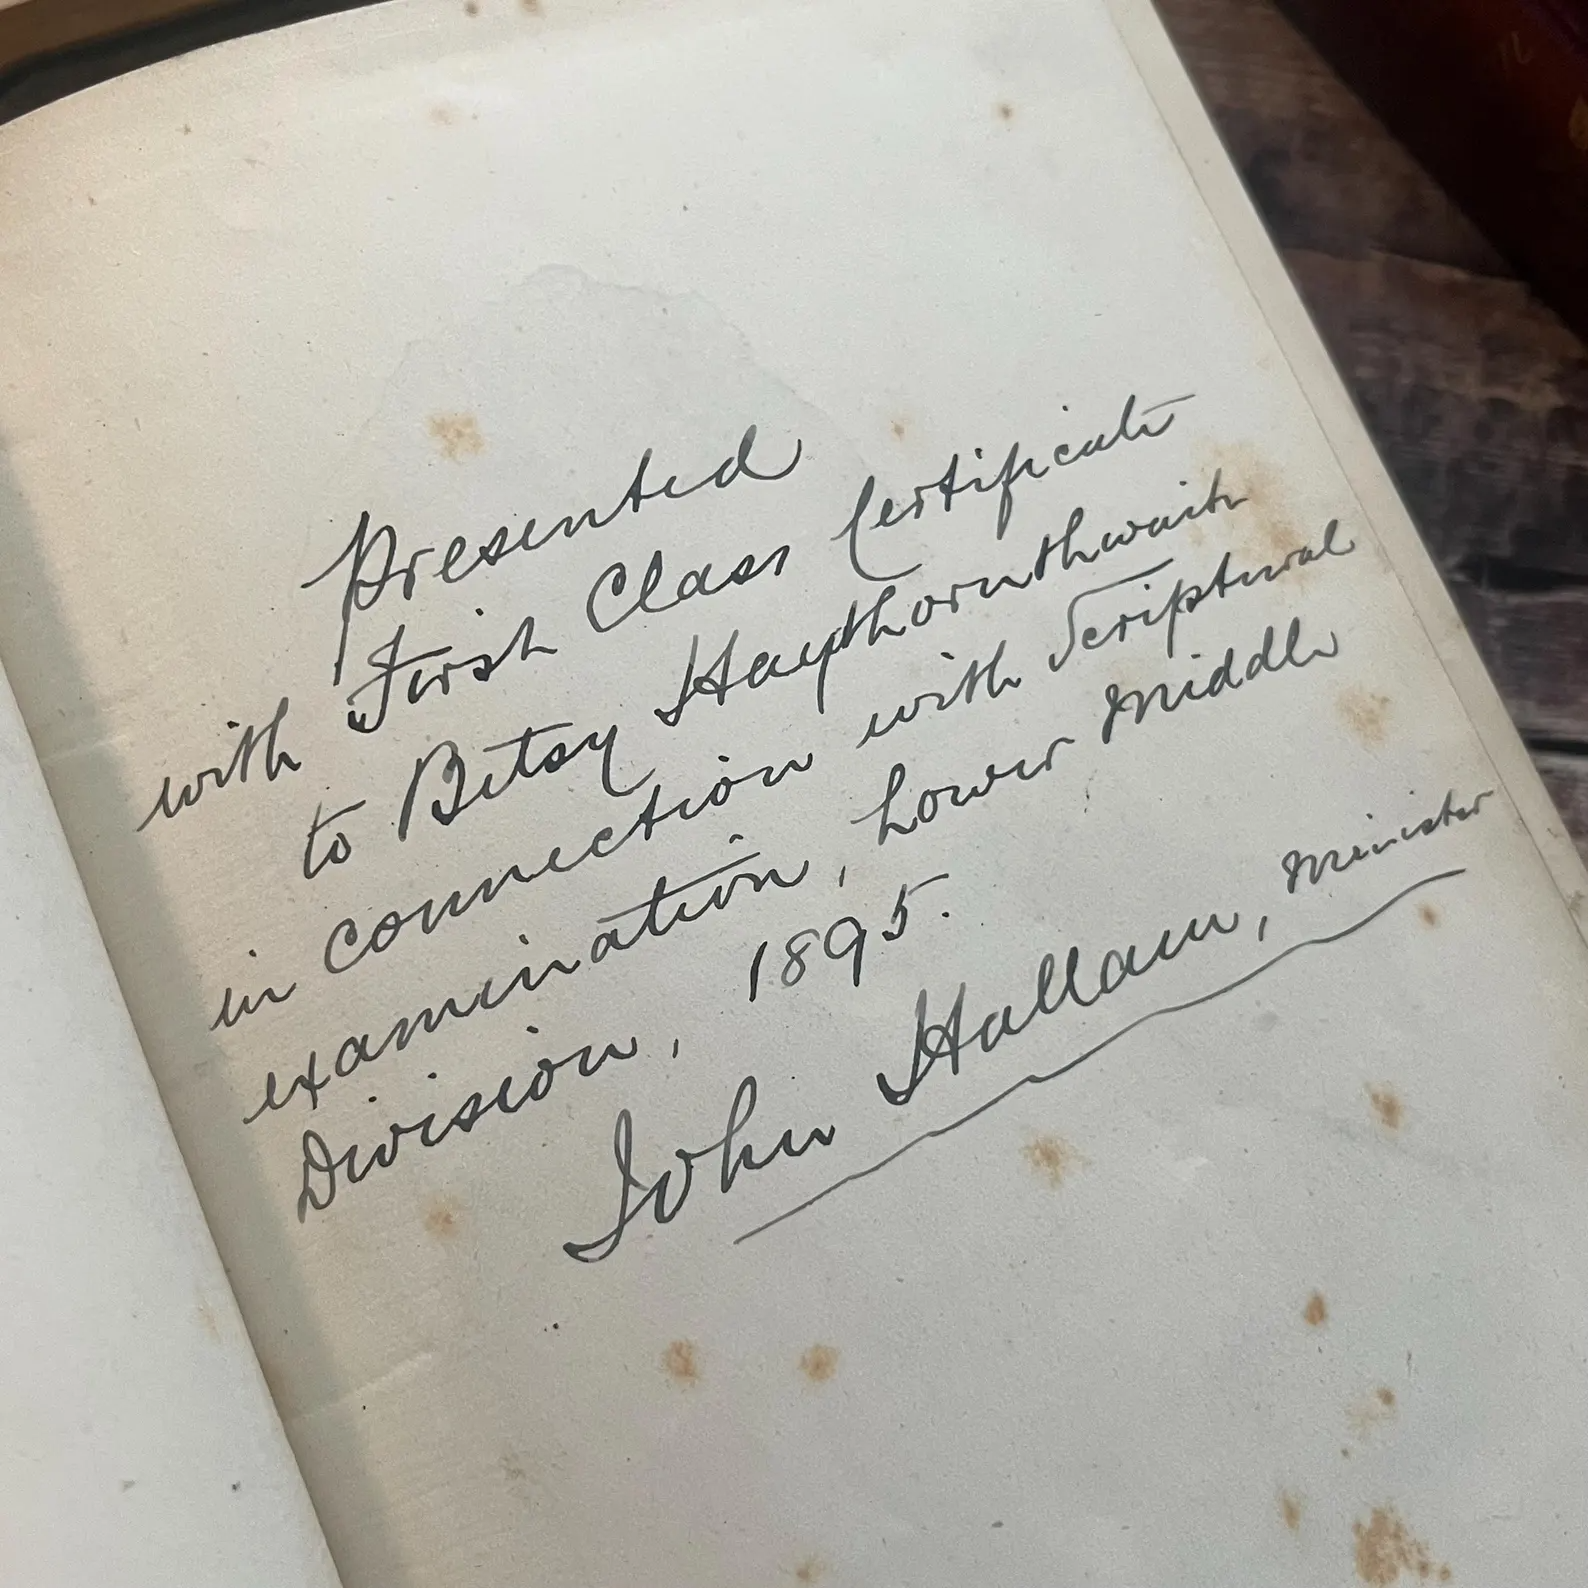 Presented
with First Class Certificate
to Betsy Haythornthwaite
in connection with Scriptural
examination, Lower Middle
Division, 1895.
John Hallam, Minister